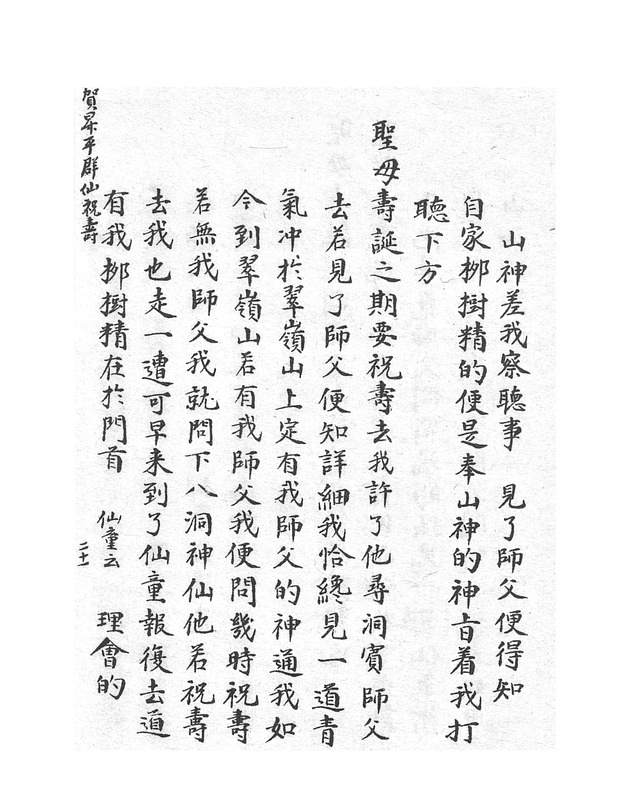 山神差我察聽事　見了師父便得知
自家栁樹精的便是奉山神的神旨着我打
聽下方
聖母壽誕之期要祝壽去我許了他尋洞賓師父
去若見了師父便知詳細我恰纔見一道青
氣冲於翠嶺山上定有我師父的神通我如
今到翠嶺山若有我師父我便問幾時祝壽
若無我師父我就問下八洞神仙他若祝壽
去我也走一遭可早来到了仙童報復去道
有我栁樹精在於門首　仙童云　理會的
賀昇平群仙祝壽
二十一